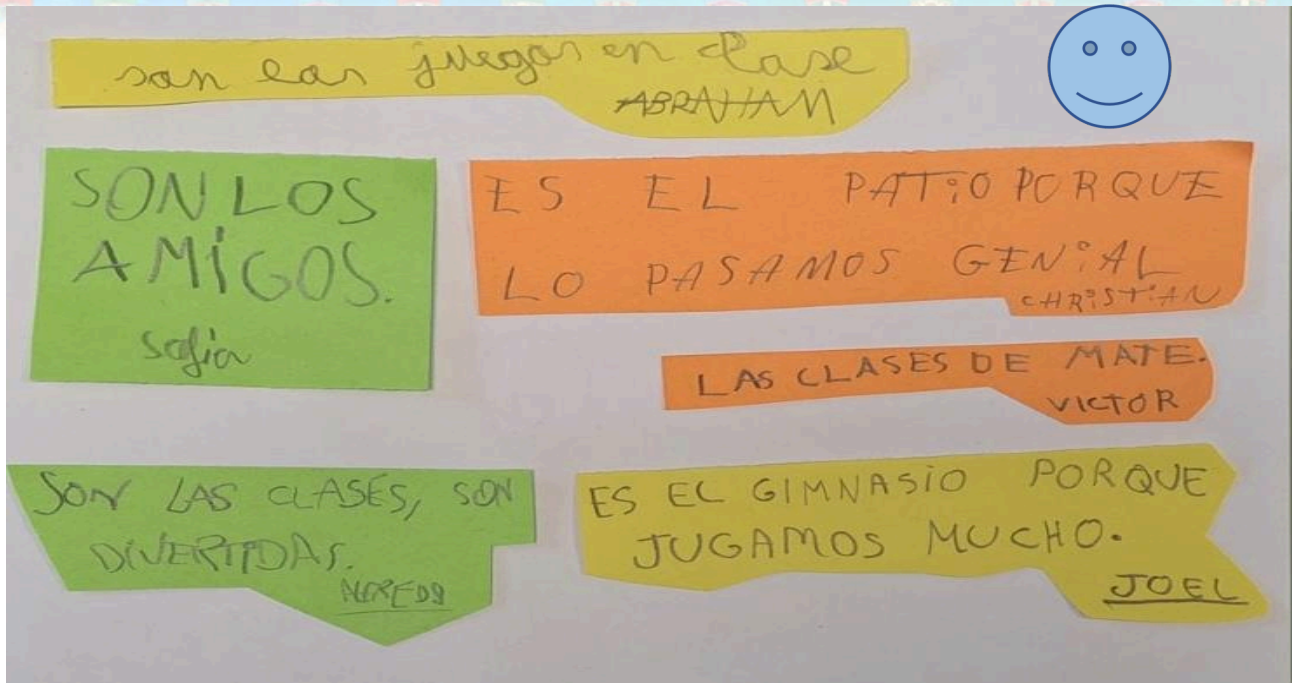 son los juegos en clase
ABRAHAM
SON LOS
AMIGOS.
Sofia
ES EL PATIO PORQUE
LO PASAMOS GENIAL
CHRISTIAN
LAS CLASES DE MATE.
VICTOR
SON LAS CLASES, SON
DIVERTIDAS.
ES EL GIMNASIO PORQUE
JUGAMOS MUCHO.
JOEL